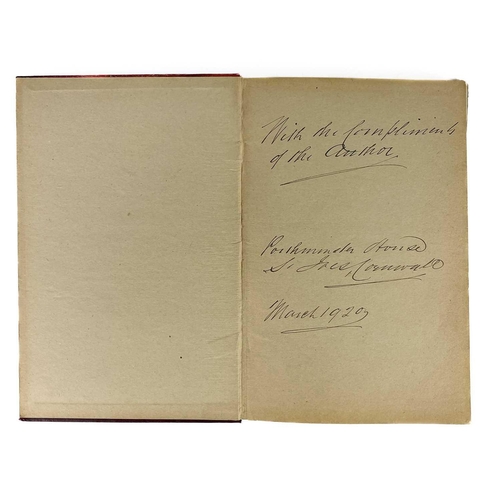 With the Compliments
of the Author
Porthminster House
St Ives, Cornwall
March 1920